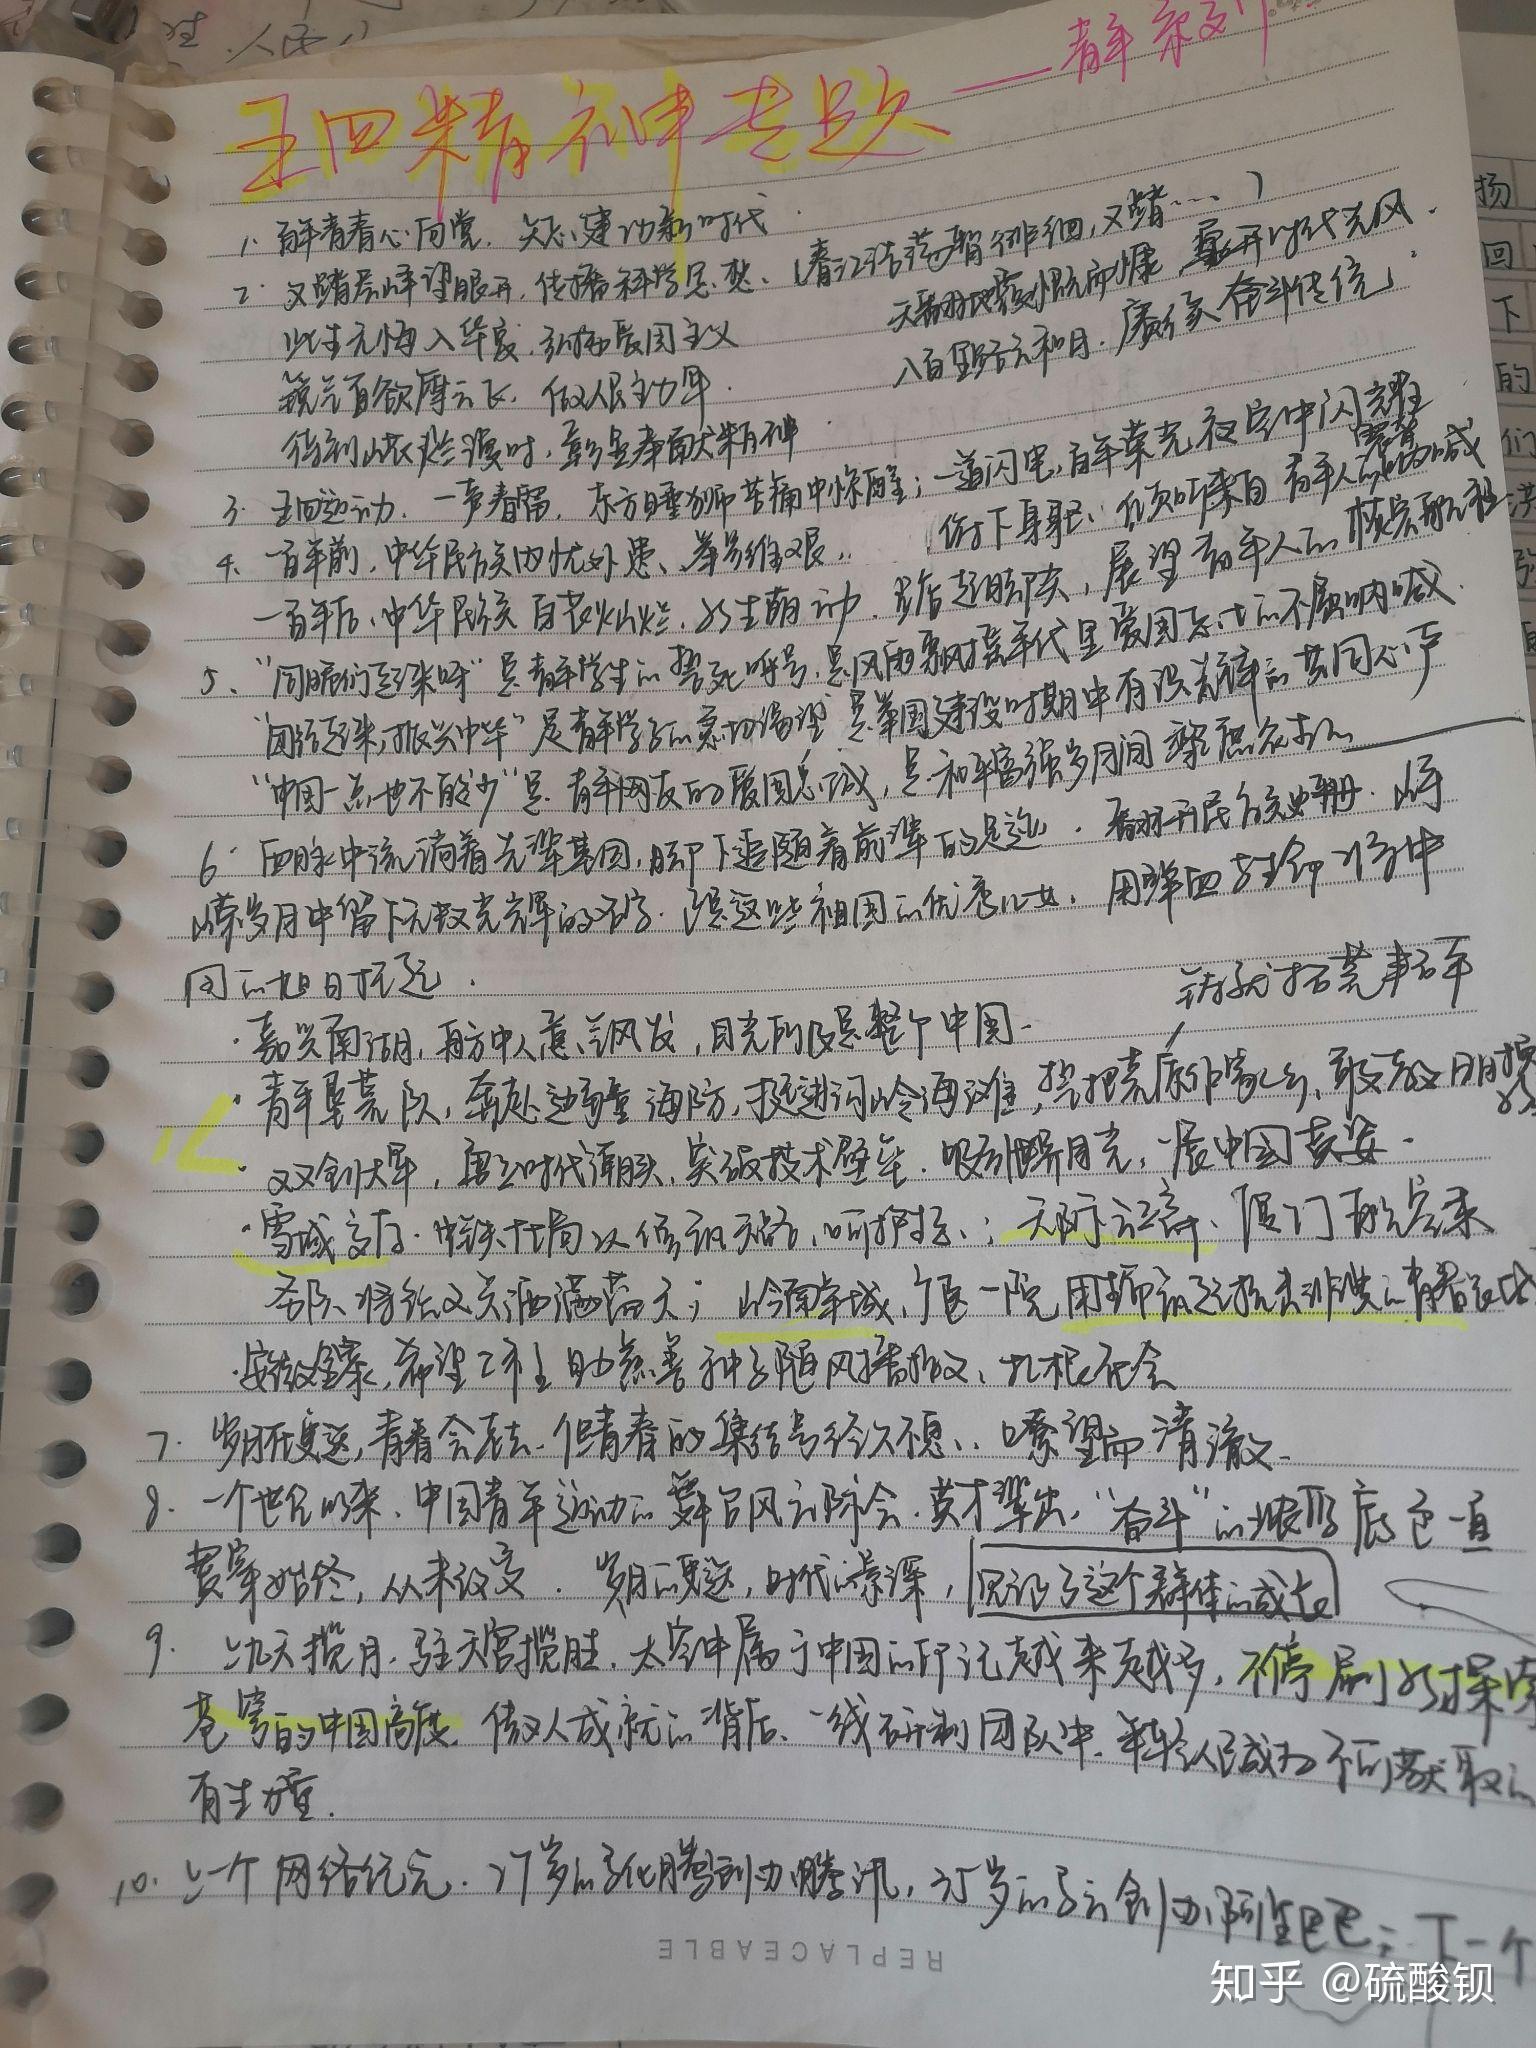 五四精神专题 ——青年系列
1. 百年青春心向党,矢志建功新时代
2. 又踏层峰望眼开,传播科学思想、(春江浩荡暂徘徊,又踏……)
天翻地覆慨而慷 重开时代先风.
此生无悔入华夏,弘扬爱国主义
八百里路云和月,赓续奋斗传统
锐气直欲摩云飞,做人民主力军.
待到山花烂漫时,彰显奉献精神
3. 五四运动,一声春雷,东方睡狮苦痛中惊醒;一道闪电,百年荣光夜空中闪耀
4. 一百年前,中华民族内忧外患、举步维艰,俯下身躯、倾听来自青年人的呐喊
一百年后,中华民族百花灿烂,新生萌动.踮起脚尖,展望青年人的
5. "同胞们起来呀"是青年学生的誓死呼号,是风雨飘摇年代里爱国志士的不屈呐喊.
"团结起来,振兴中华"是青年学子的急切渴望 是举国建设时期中有识青年的共同心声
"中国一点也不能少"是青年网友的爱国总域,是和平富强岁月间
6. 血脉中流淌着先辈基因,脚下追随着前辈的足迹.翻开民族史册.峥
嵘岁月中留下无数光辉的名字.是这些祖国的优秀儿女,用鲜血与生命将中
国的旭日托起.
铁犁拓荒
· 嘉兴南湖,再方中人意气风发,目光所及是整个中国.
· 青年垦荒队,奔赴边疆海防,挺进河岭海滩,誓把荒原作家乡,敢教日月换
新
· 双创大军,勇立时代潮头,突破技术壁垒.吸引世界目光,展中国英姿.
· 雪域高原.中铁十七局以 天路,呵护生态;
厦门
志愿 将 又 洒满蓝天;岭南羊城,广医一院
· 安徽金寨,希望工程 助慈善种子随风播撒、扎根社会
7. 岁月在变迁,青春会老去.但青春的集结号经久不息、嘹望而清澈.
8. 一个世纪以来,中国青年运动的舞台风云际会.英才辈出,"奋斗"的 底色一直
贯穿始终,从未改变.岁月的变迁,时代的景深,见证了这个群体的成长
9. 上九天揽月.驻天宫揽胜.太空中属于中国的印记越来越多,不停刷新探索
苍穹的中国高度.傲人成就的背后、一线研制团队中,年轻人已成为不可或缺的
有生力量.
10. 上一个网络纪元.27岁的马化腾创办腾讯,35岁的马云创办阿里巴巴;下一个
REPLACEABLE
扬
回
下
的
们
知乎 @硫酸钡